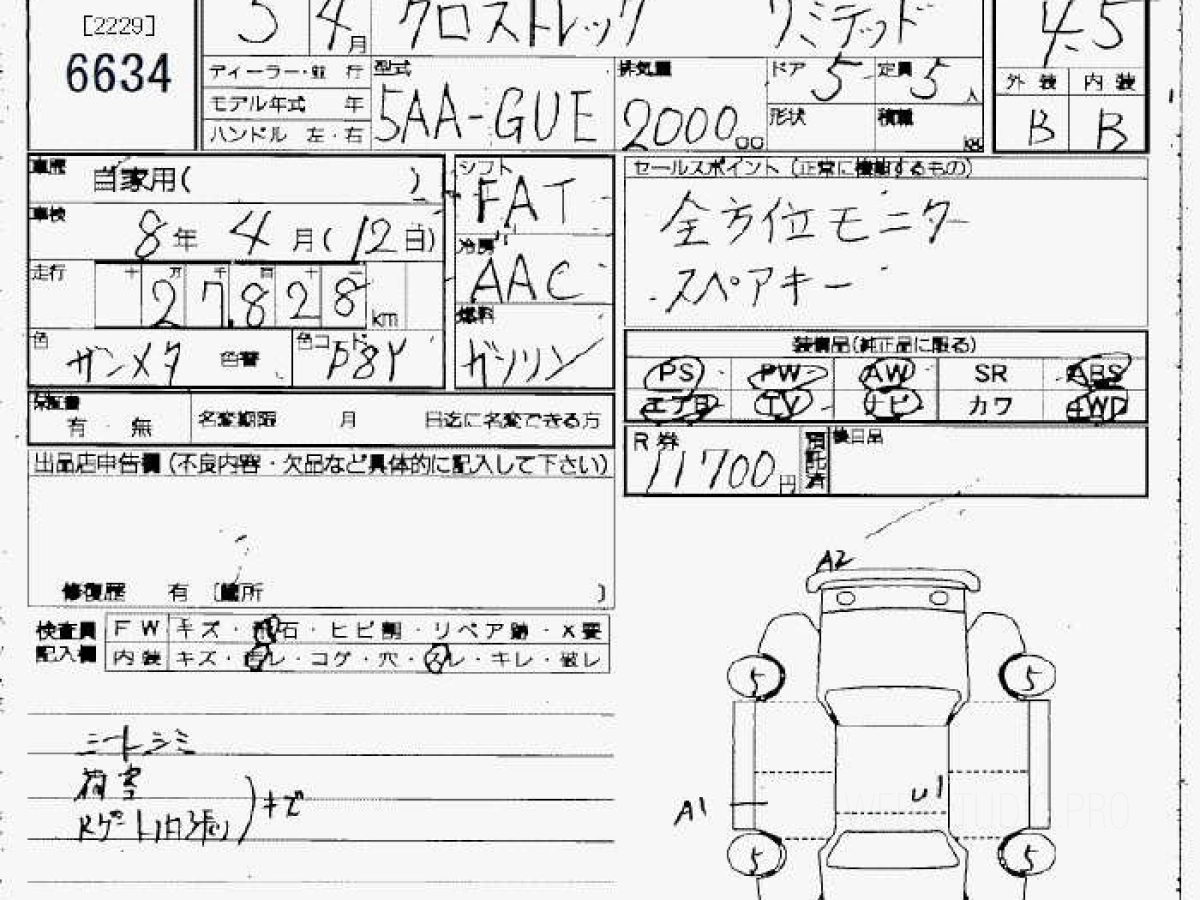 [2229]
6634
5 4月
クロストレック リミテッド
4.5
ディーラー・並 行
モデル年式 年
ハンドル 左・右
型式
5AA-GUE
排気量
2000cc
ドア 5
形状
定員 5人
積載 kg
外 装 内 装
B B
車歴 自家用( )
車検 8年 4月(12日)
走行 十 万 千 百 十 一
27,828 km
色 ガンメタ 色替
色コード P8Y
シフト
FAT
冷房
AAC
燃料
ガソリン
セールスポイント (正常に機能するもの)
全方位モニター
スペアキー
装備品(純正品に限る)
PS PW AW SR ABS
エアB TV ナビ カワ 4WD
保証書
有 無
名変期限 月 日迄に名変できる方
R券 11700円
預託済
後日品
出品店申告欄(不良内容・欠品など具体的に記入して下さい)
修復歴 有 〔箇所 〕
検査員記入欄
FW キズ・飛石・ヒビ割・リペア跡・X要
内装 キズ・汚レ・コゲ・穴・スレ・キレ・破レ
シートシミ
荷室
Rゲート内張り)キズ
A2
5 5
A1
U1
5 5